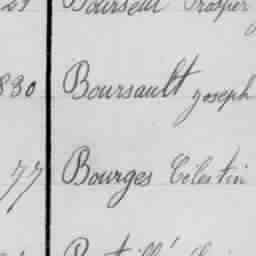 Bourseul Prosper
830 Boursault Joseph
77 Bourges Célestin